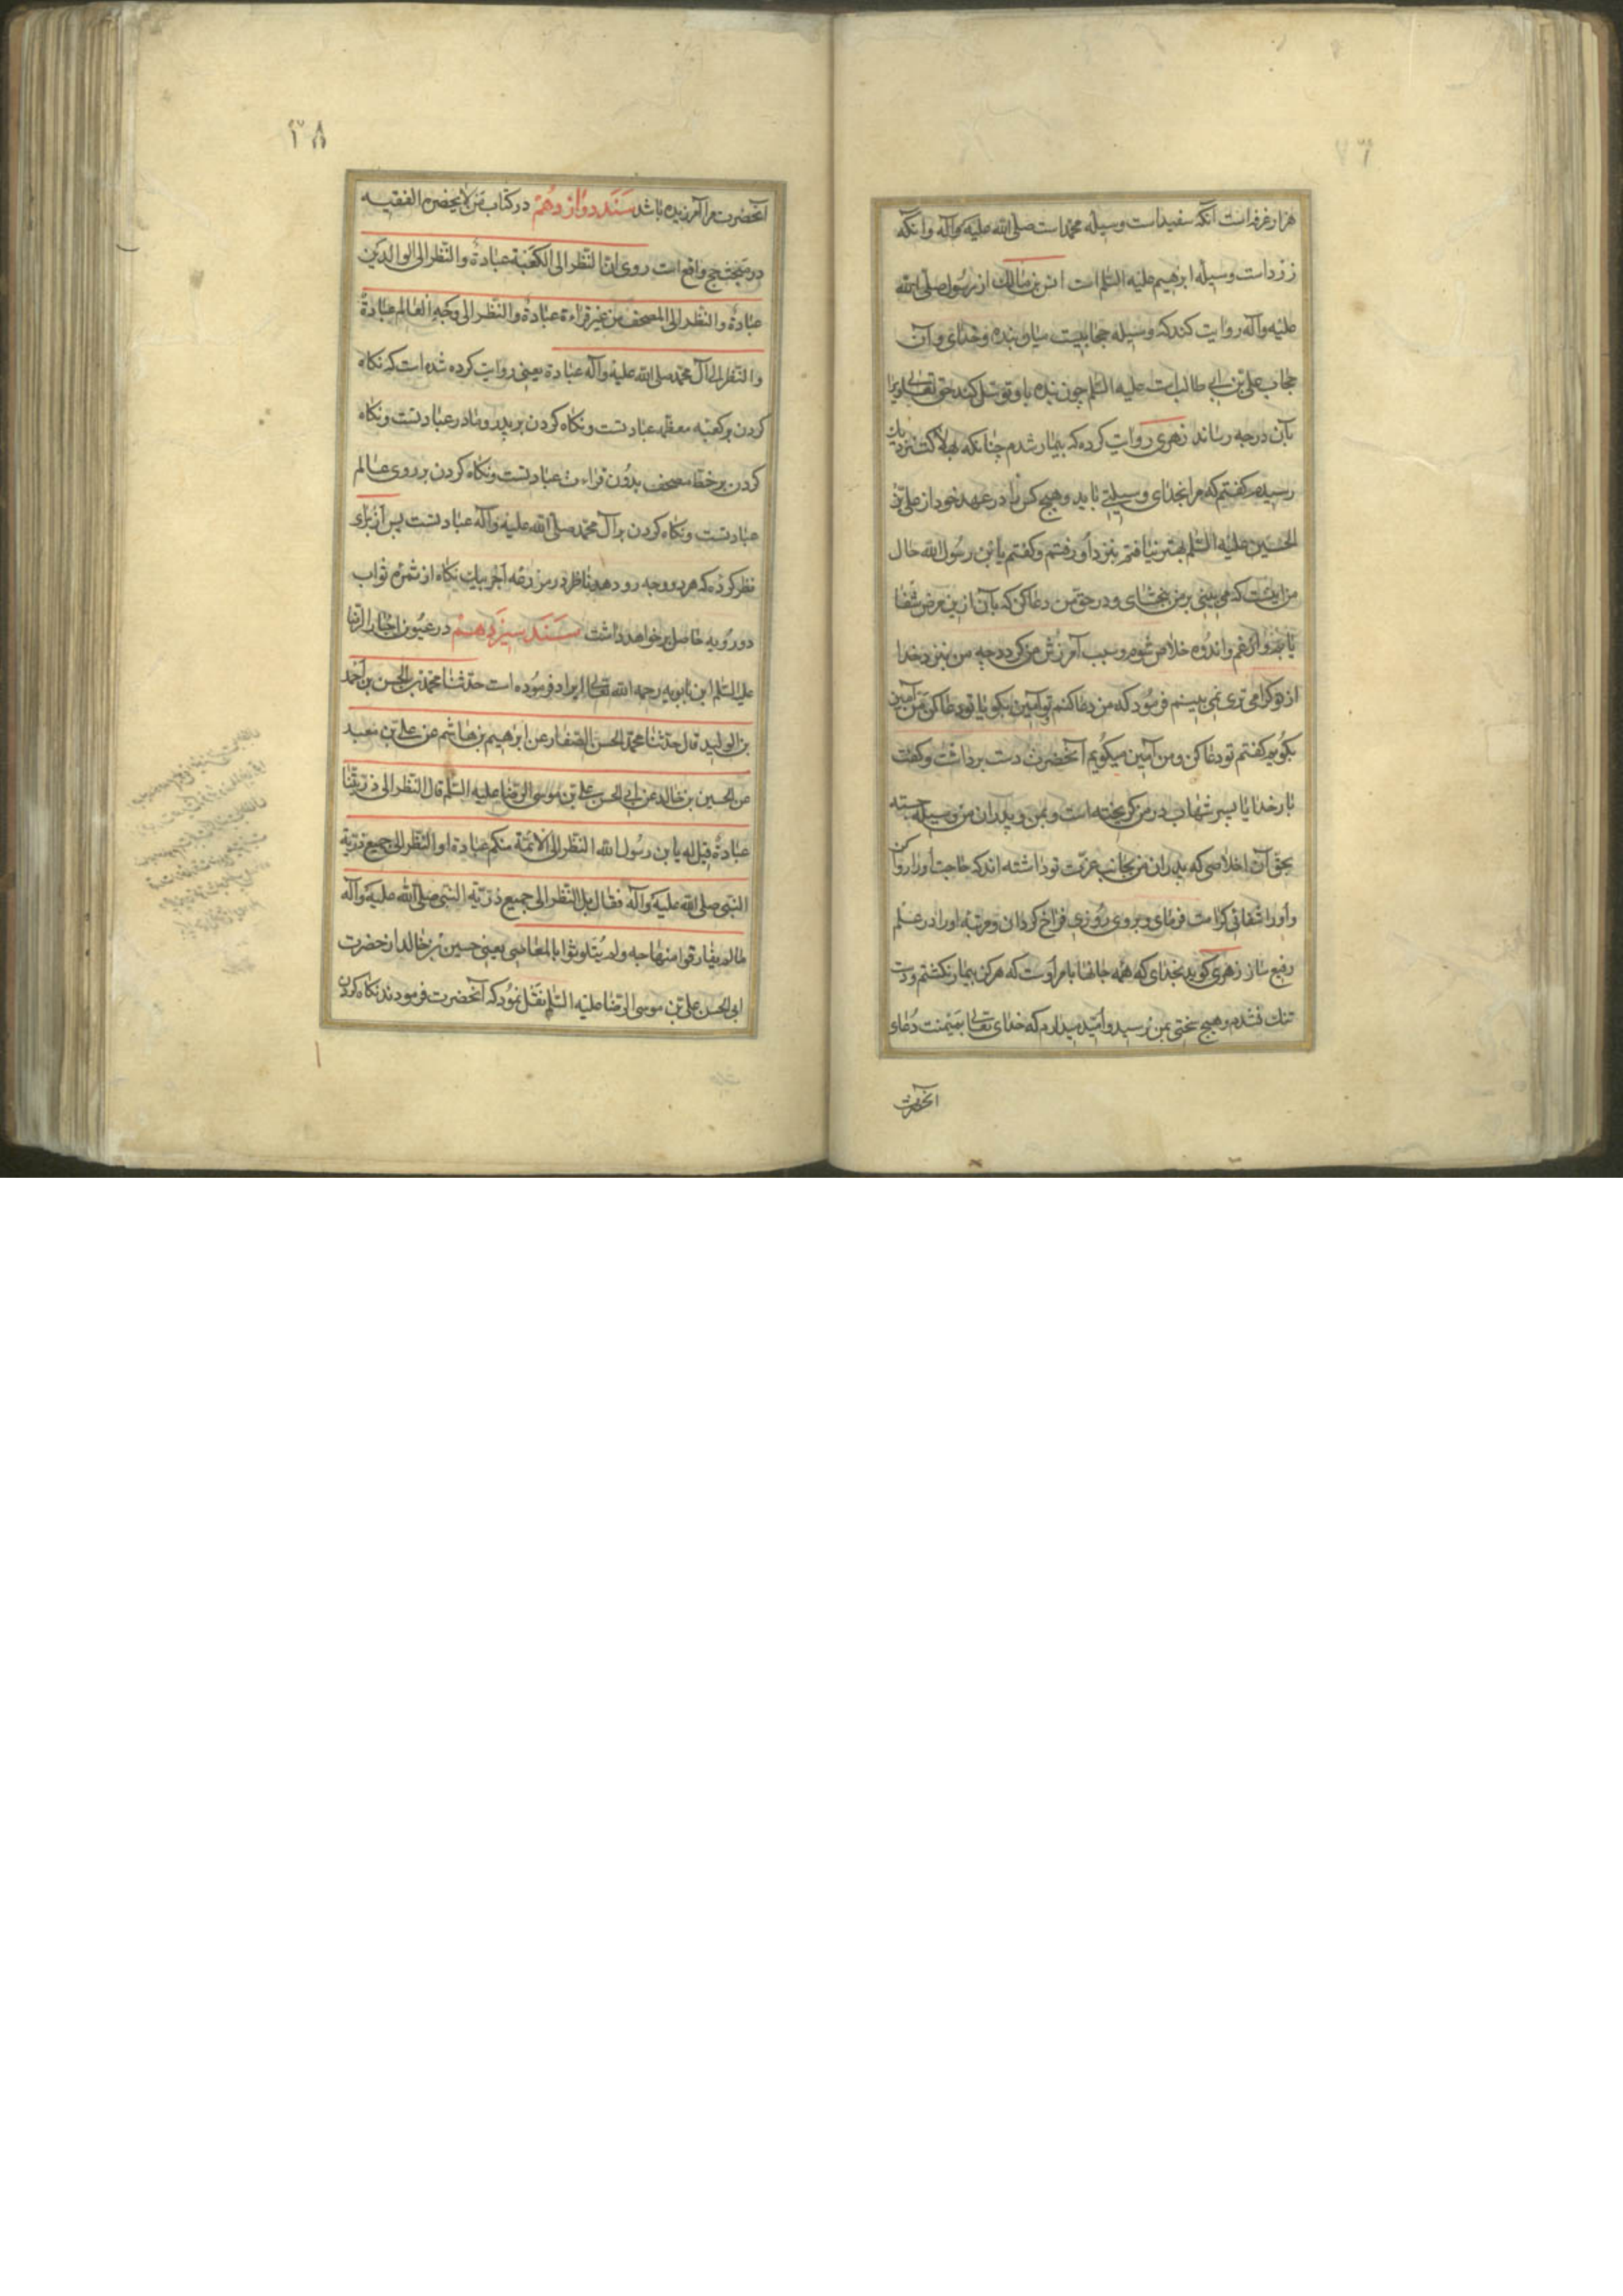 هزار غرفه است آنکه سفید است وسیله محمد است صلی الله علیه وآله وانکه
زرد است وسیله ابرهیم علیه السلم است انس بن مالک از رسول صلی الله
علیه وآله روایت کند که وسیله حجابیست میان بنده وخدای وآن
حجاب علی بن ابی طالب است علیه السلم چون بنده باو توسل کند حق تعالی ویرا
بآن درجه رساند زهری روایت کرده که بیمار شدم چنانکه بهلاکت نزدیک
رسیدم کفتم که مرا بخدای وسیلتی باید وهیچ کس را در عهد خود از علی بن
الحسین علیه السلم بهتر نیافتم بنزد او رفتم وکفتم یا بن رسول الله حال
من اینست که می بینی بر من ببخشای ودر حق من دعا کن که بآن ازین مرض شفا
یابم واز غم واندوه خلاص شوم وسبب آمرزش من کردد چه من بنزد خدا
از تو کرامی تری نمی بینم فرمود که من دعا کنم تو آمین بکو یا تو دعا کن من آمین
بکویم کفتم تو دعا کن ومن آمین میکویم آنحضرت دست برداشت وکفت
بار خدایا پسر شهاب در من کریخته است وبمن وپدران من وسیله جسته
بحق آن اخلاصی که پدران من بجانب عزت تو داشته اند که حاجت او را روا کن
واورا شفائی کرامت فرمای وبروی روزی فراخ کردان ومرتبه اورا در علم
رفیع ساز زهری کوید بخدای که همه جانها بامر اوست که هرکز بیمار نکشتم ودست
تنک نشدم وهیچ سختی بمن نرسید وامید میدارم که خدای تعالی بمیمنت دعای
آنحضرت
۱۳۸
آنحضرت مرا آمرزیده باشد سند دوازدهم در کتاب من لا یحضره الفقیه
در مبحث حج واقع است روی ان النظر الی الکعبة عبادة والنظر الی الوالدین
عبادة والنظر الی المصحف من غیر قراءة عبادة والنظر الی وجه العالم عبادة
والنظر الی آل محمد صلی الله علیه وآله عبادة یعنی روایت کرده شده است که نکاه
کردن بر کعبه معظمه عبادتست ونکاه کردن بر پدر ومادر عبادتست ونکاه
کردن بر خط مصحف بدون قراءت عبادتست ونکاه کردن بر روی عالم
عبادتست ونکاه کردن بر آل محمد صلی الله علیه وآله عبادتست پس از برای
نظر کرده که هر دو وجه رو دهد ناظر در مزرعه آخر بیک نکاه از ثمره ثواب
دو رویه حاصل بر خواهد داشت سند سیزدهم در عیون اخبار الرضا
علیه السلم ابن بابویه رحمه الله تعالی ایراد فرموده است حدثنا محمد بن الحسن بن احمد
بن الولید قال حدثنا محمد الحسن الصفار عن ابرهیم بن هاشم عن علی بن معبد
عن الحسین بن خالد عن ابی الحسن علی بن موسی الرضا علیه السلم قال النظر الی ذریتنا
عبادة قیل له یا بن رسول الله النظر الی الائمة منکم عبادة او النظر الی جمیع ذریة
النبی صلی الله علیه وآله فقال بل النظر الی جمیع ذریة النبی صلی الله علیه وآله
ما لم یفارقوا منهاجه ولم یتلوثوا بالمعاصی یعنی حسین بن خالد از حضرت
ابی الحسن علی بن موسی الرضا علیه السلم نقل نمود که آنحضرت فرمودند نکاه کردن